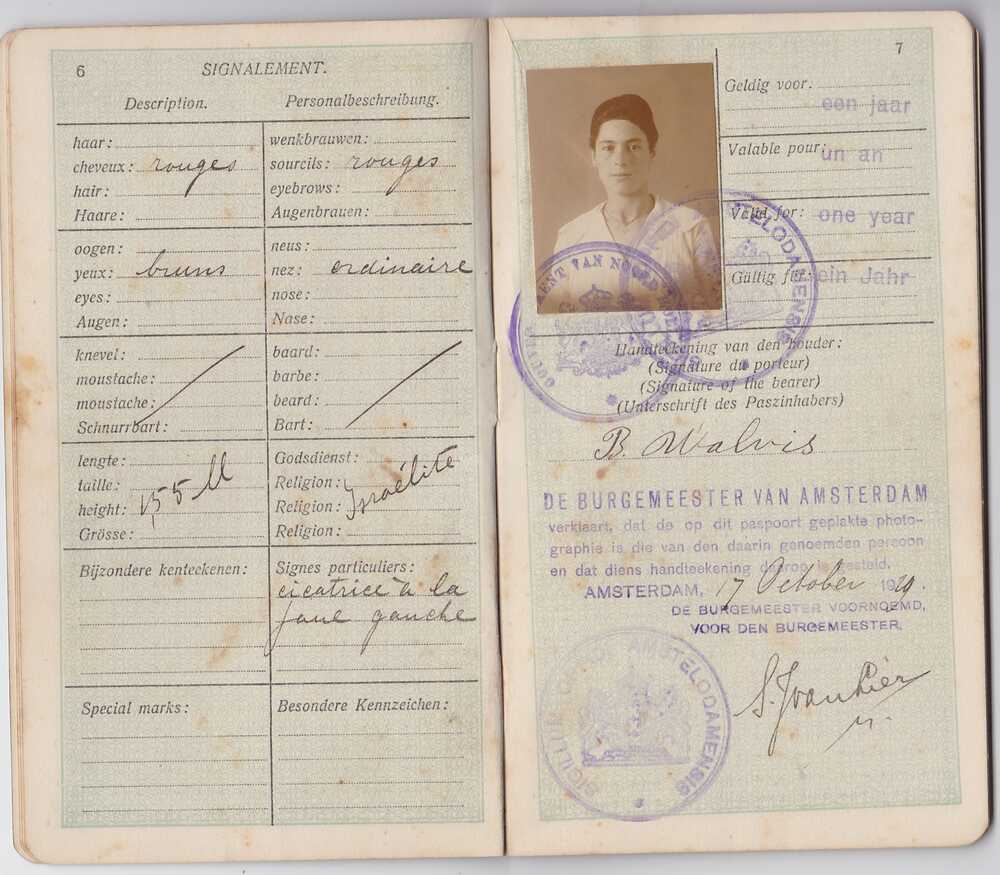 6
SIGNALEMENT.
Description.
Personalbeschreibung.
haar:
cheveux: rouges
hair:
Haare:
wenkbrauwen:
sourcils: rouges
eyebrows:
Augenbrauen:
oogen:
yeux: bruns
eyes:
Augen:
neus:
nez: ordinaire
nose:
Nase:
knevel:
moustache:
moustache:
Schnurrbart:
baard:
barbe:
beard:
Bart:
lengte:
taille:
height: 1,55 M
Grösse:
Godsdienst:
Religion: Israélite
Religion:
Religion:
Bijzondere kenteekenen:
Signes particuliers:
cicatrice à la
joue gauche
Special marks:
Besondere Kennzeichen:
7
Geldig voor:
een jaar
Valable pour: un an
Valid for: one year
Gültig für: ein Jahr
GOUVERNEMENT VAN NOORD
AMSTELODAMENSIS
Handteekening van den houder:
(Signature du porteur)
(Signature of the bearer)
(Unterschrift des Paszinhabers)
B. Walvis
DE BURGEMEESTER VAN AMSTERDAM
verklaart, dat de op dit paspoort geplakte photo-
graphie is die van den daarin genoemden persoon
en dat diens handteekening daarop is gesteld.
AMSTERDAM, 17 October 1919.
DE BURGEMEESTER VOORNOEMD,
VOOR DEN BURGEMEESTER,
AMSTELODAMENSIS